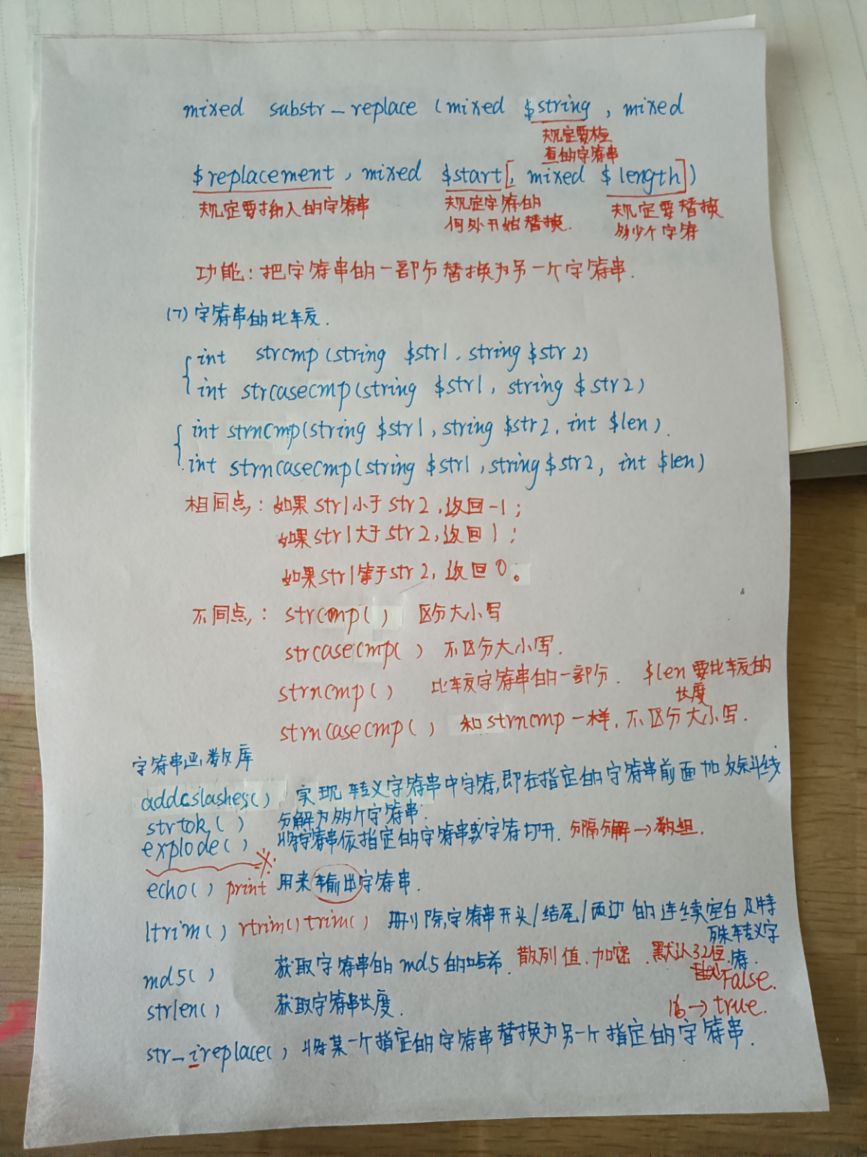 mixed substr_replace (mixed $string, mixed
规定要检
查的字符串
$replacement, mixed $start[, mixed $length])
规定要插入的字符串 规定字符的 规定要替换
何处开始替换. 多少个字符
功能: 把字符串的一部分替换为另一个字符串.
(7) 字符串的比较.
int strcmp (string $str1, string $str2)
int strcasecmp(string $str1, string $str2)
int strncmp(string $str1, string $str2, int $len).
int strncasecmp(string $str1, string $str2, int $len)
相同点: 如果str1小于str2,返回-1;
如果str1大于str2,返回1;
如果str1等于str2,返回0。
不同点: strcmp() 区分大小写
strcasecmp() 不区分大小写.
strncmp() 比较字符串的一部分. $len要比较的
长度
strncasecmp() 和strncmp一样,不区分大小写.
字符串函数库
addcslashes() 实现转义字符串中字符,即在指定的字符串前面加反斜线
strtok() 分解为多个字符串.
explode() 将字符串依指定的字符串或字符切开. 分隔分解→数组.
echo() print 用来输出字符串.
ltrim() rtrim() trim() 删除字符串开头/结尾/两边的连续空白及特
殊转义字
md5() 获取字符串的md5的哈希. 散列值.加密.默认32位. 符.
False.
strlen() 获取字符串长度. 16→true.
str_ireplace() 将某一个指定的字符串替换为另一个指定的字符串.